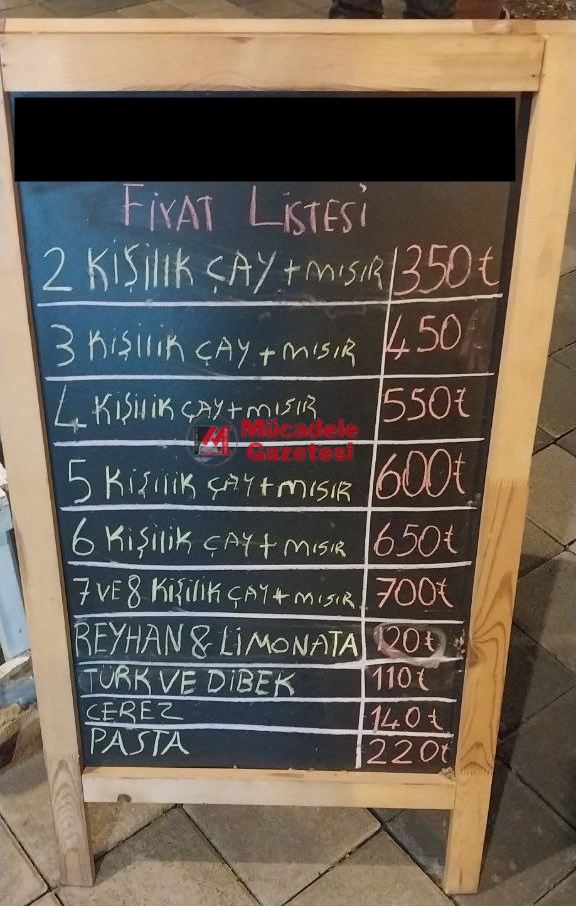 FİYAT LİSTESİ
2 KİŞİLİK ÇAY + MISIR 350₺
3 KİŞİLİK ÇAY + MISIR 450
4 KİŞİLİK ÇAY + MISIR 550₺
Mücadele
Gazetesi
5 KİŞİLİK ÇAY + MISIR 600₺
6 KİŞİLİK ÇAY + MISIR 650₺
7 VE 8 KİŞİLİK ÇAY + MISIR 700₺
REYHAN & LİMONATA 120₺
TÜRK VE DİBEK 110₺
ÇEREZ 140₺
PASTA 220₺